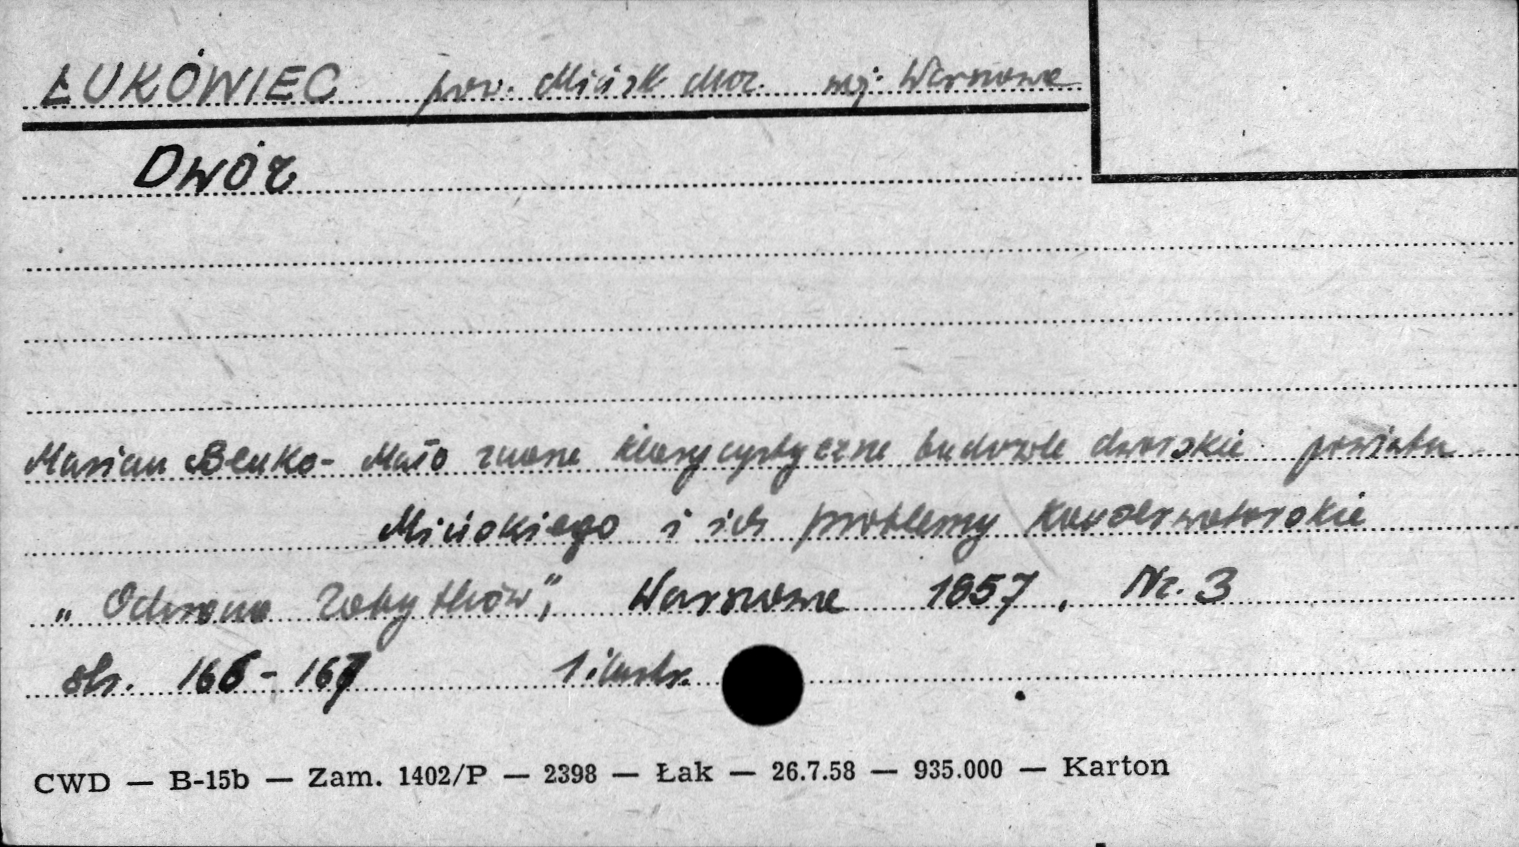 ŁUKÓWIEC pow. Mińsk Maz. woj. Warszawa
Dwór
Marian Benko - Mało znane klasycystyczne budowle dworskie powiatu
Mińskiego i ich problemy konserwatorskie
„Ochrona Zabytków”, Warszawa 1957, Nr. 3
str. 166 - 167 1 ilustr.
CWD — B-15b — Zam. 1402/P — 2398 — Łak — 26.7.58 — 935.000 — Karton